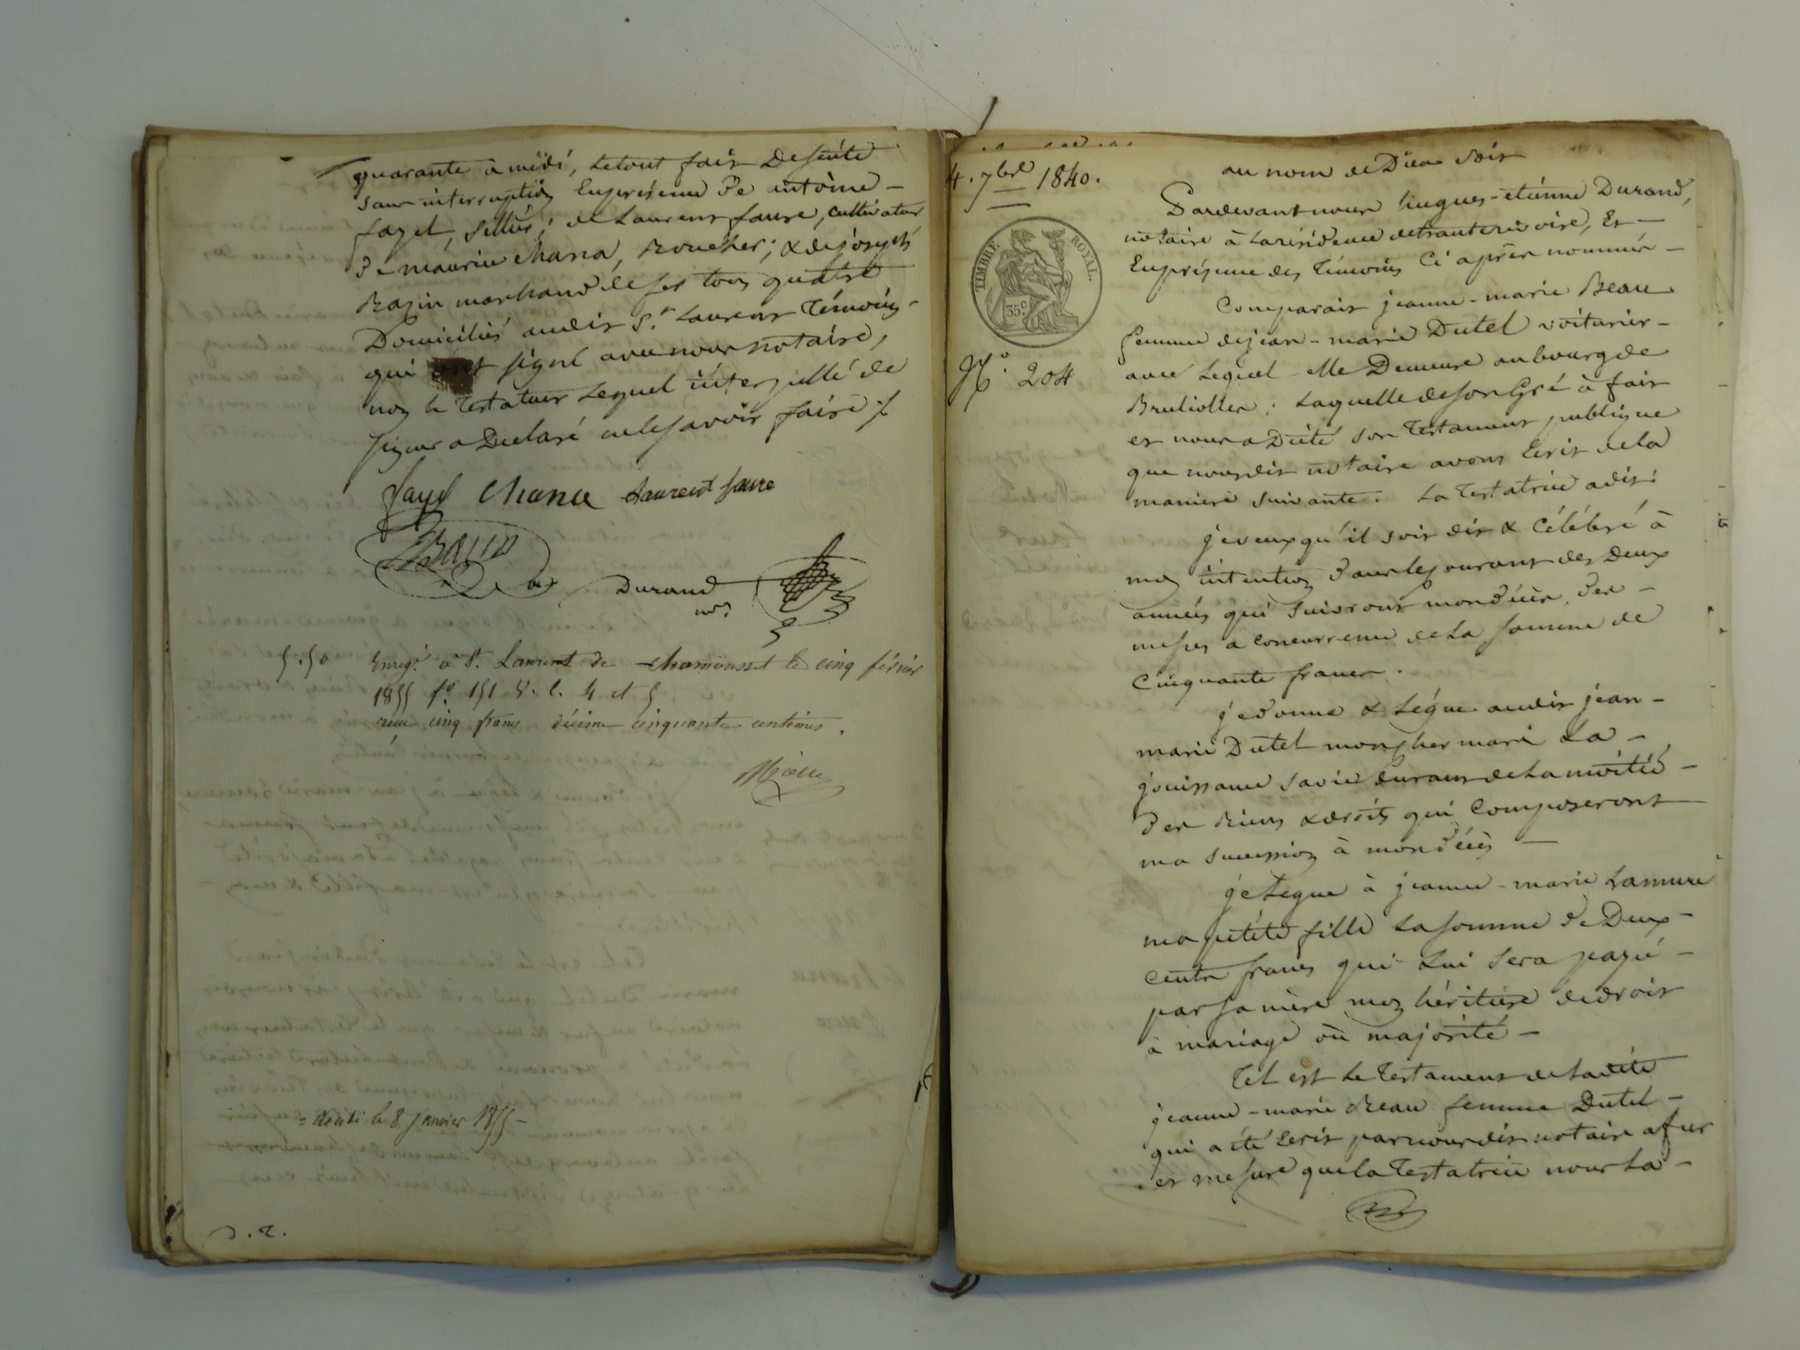 quarante à midi, le tout fait de suite
sans interruption En présence de antoine
fayet, sellier; de Laurent faure, cultivateur
de maurice Chana, Boucher; & de joseph
Bazin marchand de fer tous quatre
Domiciliés audit St. Laurent Témoins
qui ont signé avec nous notaire,
non le Testateur Lequel interpellé de
signer a Déclaré ne le savoir faire
fayet Chana Laurent faure
Bazin
Durand
nre
5.50
Enregé à St. Laurent de chamousset le cinq février
1855 fo. 151 v. c. 4 et 5
reçu cinq francs décime cinquante centimes.
= décédé le 8 janvier 1855 -
4. 7bre 1840.
TIMBRE ROYAL.
35 c.
No. 204
au nom de Dieu soit
Pardevant nous hugues-étienne Durand,
notaire à la résidence de
En présence des Témoins Ci après nommés
Comparait jeanne-marie Beau
femme de jean-marie Dutel voiturier
avec Lequel elle Demeure au bourg de
Brulioles; Laquelle de son Gré a fait
et nous a Dicté son Testament publique
que nous dit notaire avons Ecrit de la
maniere suivante: La Testatrice a dit:
je veux qu'il soit dit & Célébré à
mon intention dans le courant des Deux
années qui suivront mon décès, des
messes a concurrence de La somme de
Cinquante francs.
je donne & Légue audit jean-
marie Dutel mon cher mari La
jouissance sa vie durant de La moitié
des Biens & droits qui Composeront
ma succession à mon décès
je Legue à jeanne-marie Lamure
ma petite fille La somme de Deux
Cents francs qui Lui sera payé
par sa mère mon héritière de droit
à mariage ou majorité
Tel est Le Testament de Ladite
jeanne-marie Beau femme Dutel
qui a été Ecrit par nous dit notaire a fur
et mesure que la Testatrice nous La